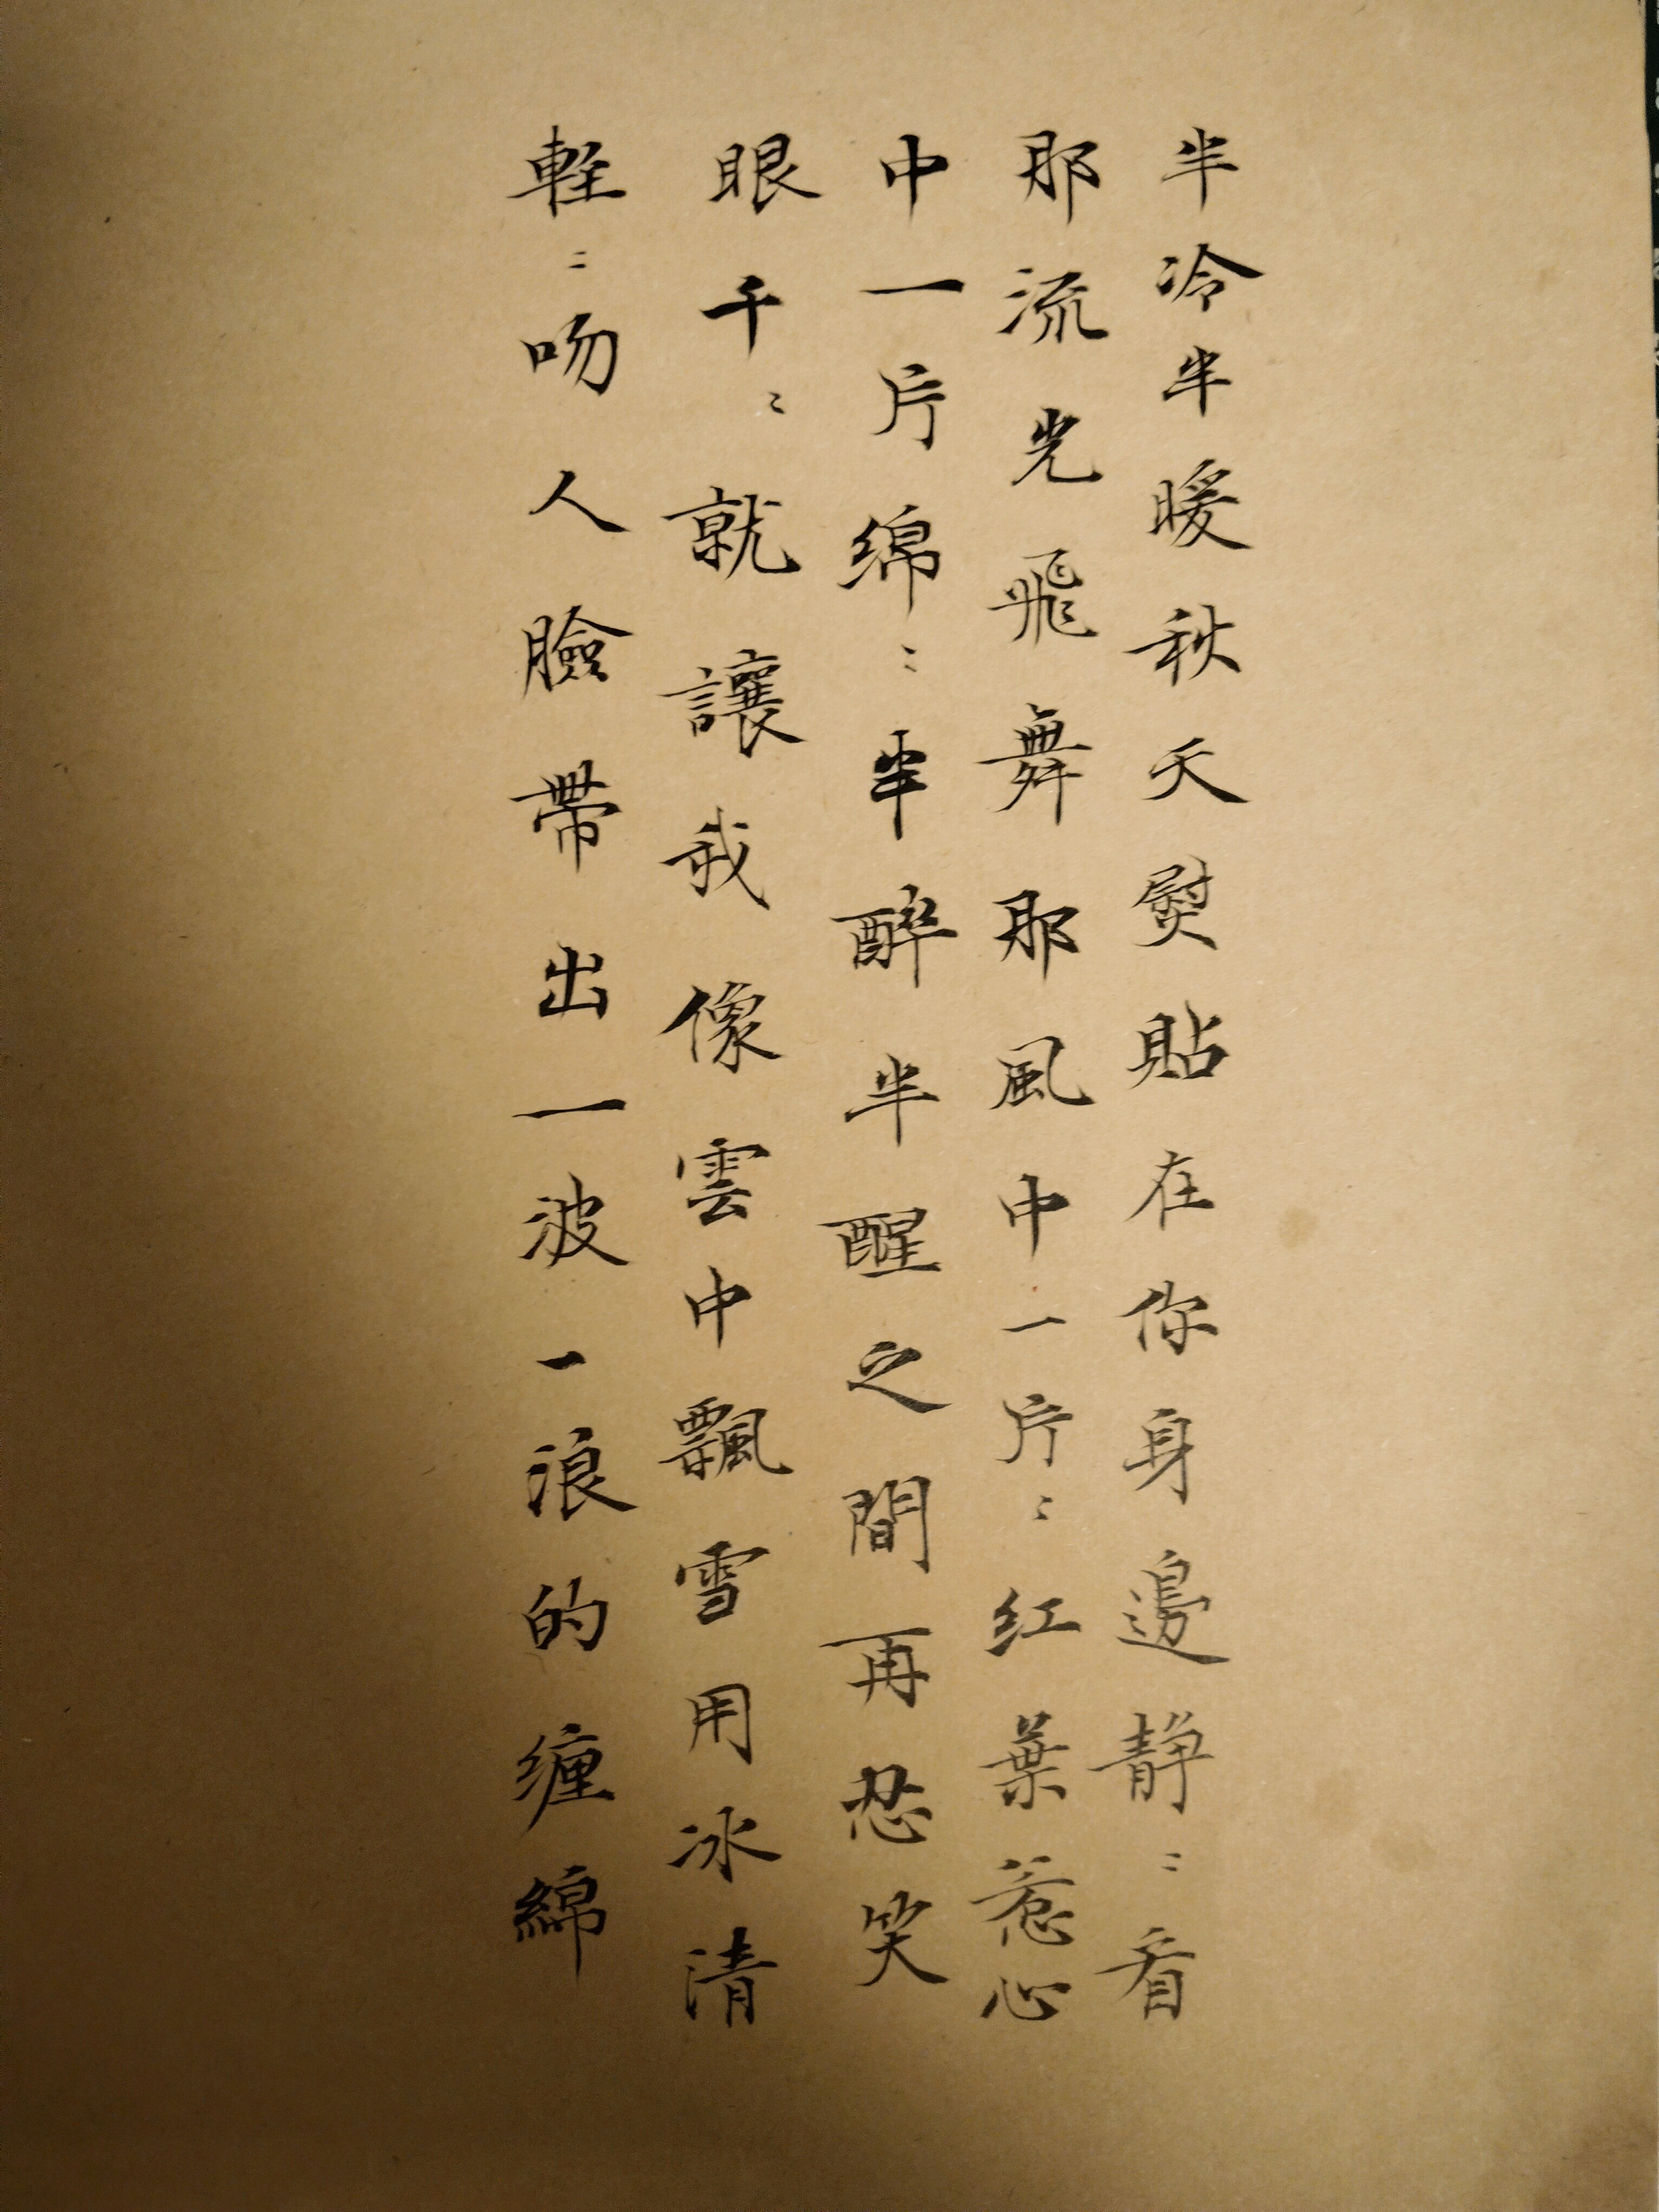 半冷半暖秋天熨貼在你身邊静〻看
那流光飛舞那風中一片〻红葉惹心
中一片绵〻半醉半醒之間再忍笑
眼千〻就讓我像雲中飄雪用冰清
軽〻吻人臉帶出一波一浪的缠綿